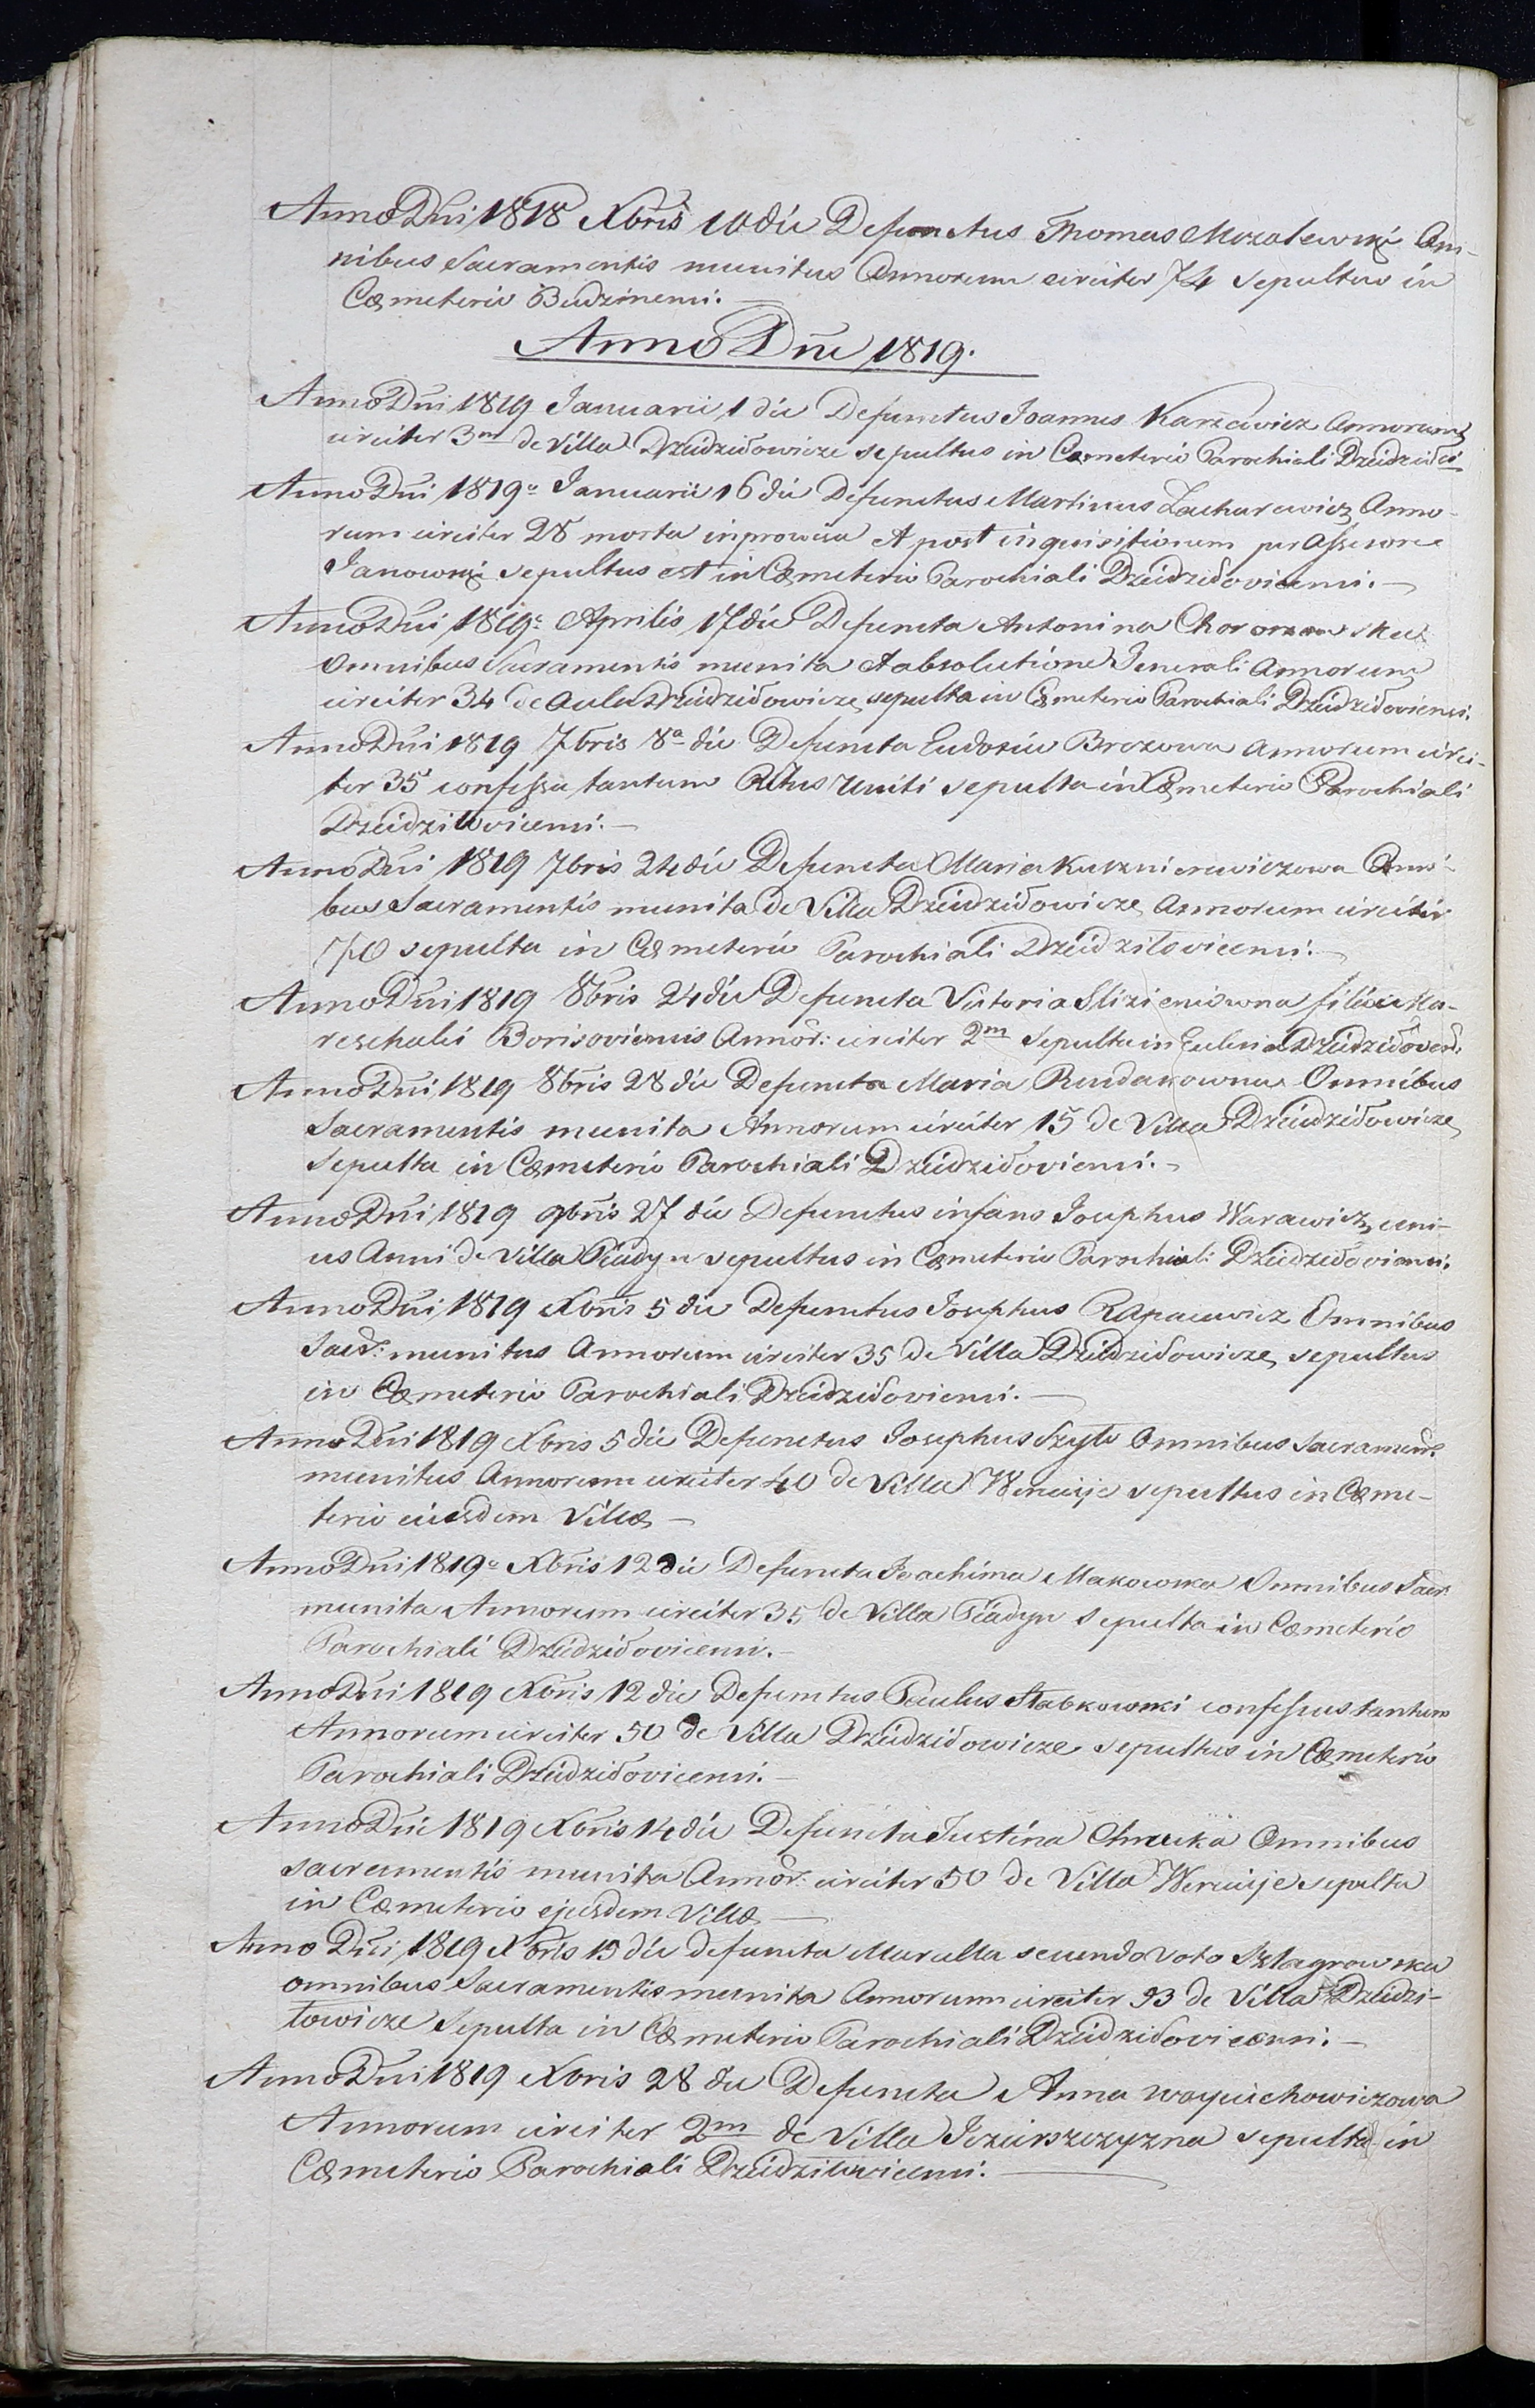 Anno Dni 1818 Xbris 10 die Defunctus Thomas Mozolewski Om-
nibus Sacramentis munitus Annorum circiter 74 sepultus in
Cœmeterio Budzinensi.
Anno Dni 1819.
Anno Dni 1819 Januarii 1 die Defunctus Joannes Karzewicz Annorum
circiter 3m de Villa Dziedziłowicze sepultus in Cœmeterio Parochiali Dziedziłci
Anno Dni 1819o Januarii 16 die Defunctus Martinus Zacharewicz Anno-
rum circiter 28 morta inprowisa et post inquisitionem per Assesore
Janowski sepultus est in Cœmeterio Parochiali Dziedziłoviensi.
Anno Dni 1819o Aprilis 17 die Defuncta Antonina
Omnibus Sacramentis munita et absolutione Jenerali Annorum
circiter 34 de Aula Dziedziłowicze sepulta in Cœmeterio Parochiali Dziedziłoviensi.
Anno Dni 1819 7bris 8a die Defuncta Eudoxia Brozowa Annorum circi-
ter 35 confessa tantum Ritus Uniti sepulta in Cœmeterio Parochiali
Dziedziłovicensi.
Anno Dni 1819 7bris 24 die Defuncta Maria Kusznierewiczowa Omni-
bus Sacramentis munita de Villa Dziedziłowicze Annorum circiter
70 sepulta in Cœmeterio Parochiali Dziedziłovicensi.
Anno Dni 1819 8bris 24 die Defuncta Victoria Sliźieniowna filia Ma-
reschali Borisoviensis Annor: circiter 2m Sepulta in Eclesia Dziedziłovens.
Anno Dni 1819 8bris 28 die Defuncta Maria Rudakowna Omnibus
Sacramentis munita Annorum circiter 15 de Villa Dziedziłowicze
Sepulta in Cœmeterio Parochiali Dziedziłoviensi.
Anno Dni 1819 9bris 27 die Defunctus infans Josephus Warawicz uni-
us Anni de Villa Piadyn sepultus in Cœmeterio Parochiali Dziedziłoviensi.
Anno Dni 1819 Xbris 5 die Defunctus Josephus Rapacewicz Omnibus
Sacr: munitus Annorum circiter 35 de Villa Dziedziłowicze sepultus
in Cœmeterio Parochiali Dziedziłoviensi.
Anno Dni 1819 Xbris 5 die Defunctus Josephus Szyło Omnibus Sacramen:
munitus Annorum circiter 40 de Villa Wereiije sepultus in Cœme-
terio eiusdem Villæ
Anno Dni 1819o Xbris 12 die Defuncta Joachima Makowska Omnibus Sacr:
munita Annorum circiter 35 de Villa Piadyn Sepulta in Cœmeterio
Parochiali Dziedziłovicensi.
Anno Dni 1819 Xbris 12 die Defunctus Paulus Słabkowski confessus tantum
Annorum circiter 50 de Villa Dziedziłowicze sepultus in Cœmeterio
Parochiali Dziedziłovicensi.
Anno Dni 1819 Xbris 14 die Defuncta Justina Omnibus
sacramentis munita Annor: circiter 50 de Villa Wereiije sepulta
in Cœmeterio ejusdem Villæ
Anno Dni 1819 Xbris 15 die defuncta Marulla secundo voto
omnibus Sacramentis munita Annorum circiter 93 de Villa Dziedzi-
łowicze Sepulta in Cœmeterio Parochiali Dziedziłovicensi.
Anno Dni 1819 Xbris 28 die Defuncta Anna Woyciechowiczowa
Annorum circiter 2m de Villa sepulta in
Cœmeterio Parochiali Dziedziłovicensi.